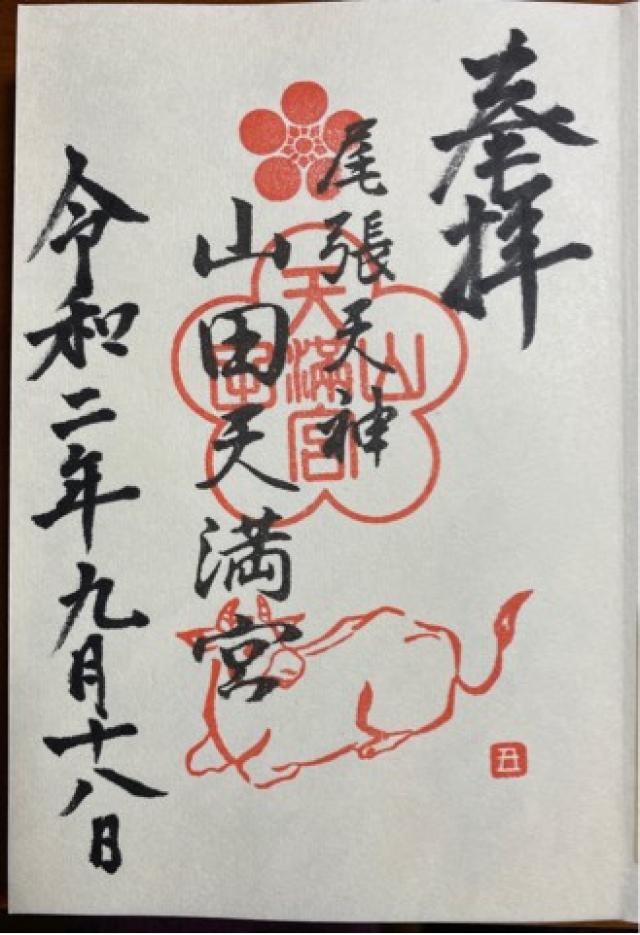 奉拝
尾張天神
山田天満宮
令和二年九月十八日
山田
天満宮
丑